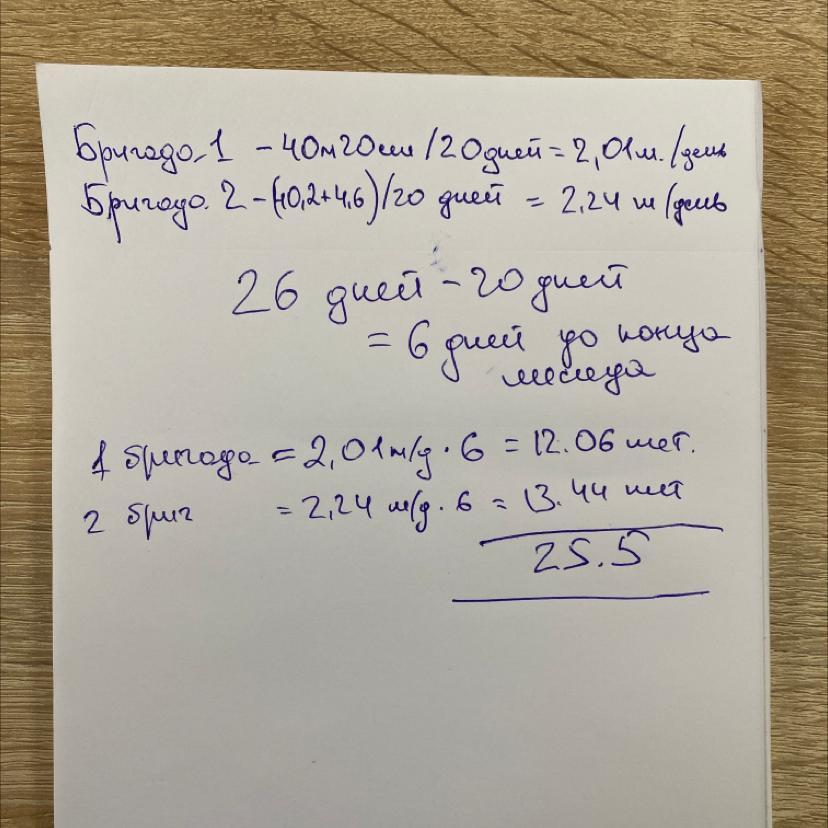 Бригада 1 - 40м20см/20дней = 2,01м./день
Бригада 2 - (40,2+4,6)/20 дней = 2,24 м/день
26 дней - 20 дней
= 6 дней до конца
месяца
1 бригада = 2,01м/д · 6 = 12.06 мет.
2 бриг = 2,24 м/д · 6 = 13.44 мет
25.5